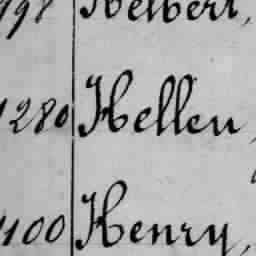 798 Helbert,
1280 Hellen,
1100 Henry,